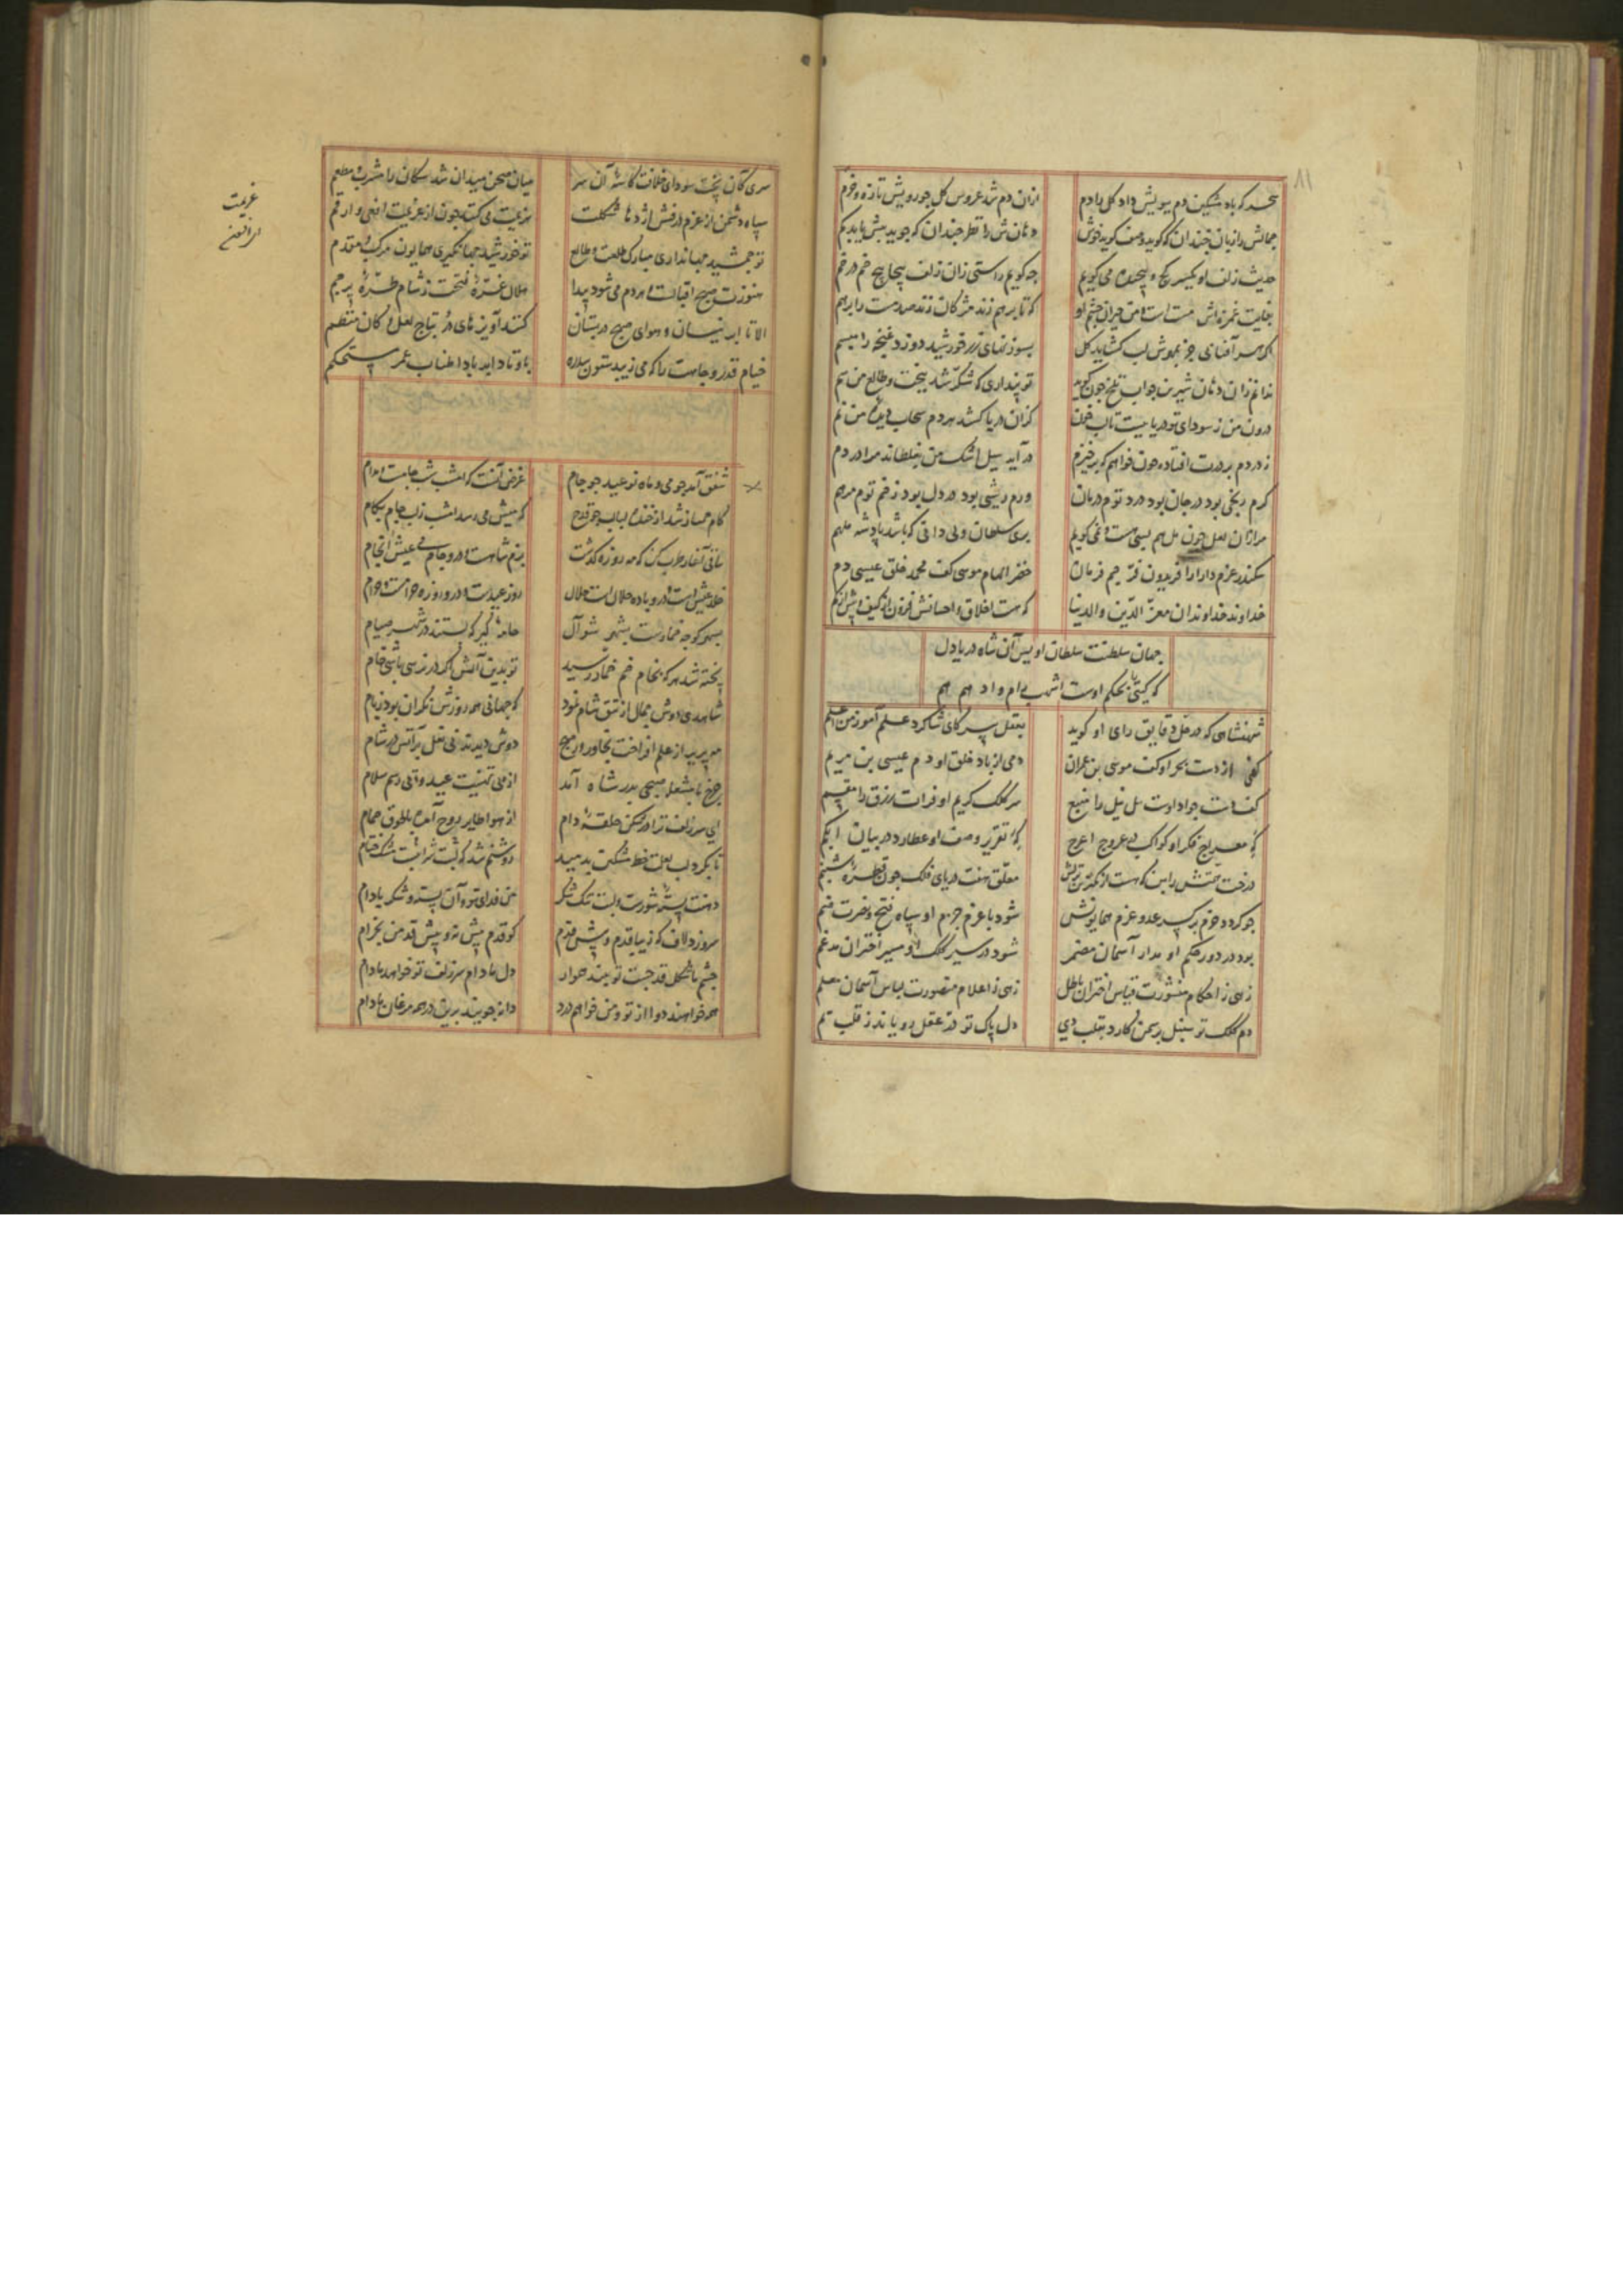 ۸۱
سحر که باد مشکین دم ببویش داد گل را دم
ازان دم شد عروس گل چو رویش تازه و خرم
جمالش را زبان چندان که گوید وصف گوید خوش
دهانش را نظر چندان که جوید بیش یابد کم
حدیث زلف او یکسر کج و پیچیده می گویم
چه گویم راستی زان زلف پیچاپیچ خم در خم
بغایت غمزه اش مست است و من حیران چشم او
که تا بر هم زند مژگان زند صد مست را بر هم
اگر مهر آفتابی جز بمهرش لب گشاید گل
بسوزنهای زر خورشید دوزد غنچه را مبسم
ندانم زان دهان شیرین جواب تلخ چون گوید
تو پنداری که شکر شد ببخت و طالع من سم
درون من ز سودای تو دریاییست تاب خون
کزان دریا کشد هر دم سحاب من نم
ز دردم بر درت افتاده چون خواهم که برخیزم
در آید سیل اشک من بغلطاند مرا در دم
گرم رنجی بود در جان بود درد توم درمان
ورم ریشی بود در دل بود زخم توم مرهم
مرا زان لعل چون مل هم بسی هست و نمی گویم
بری سلطان ولی دانی که باشد پادشه ملهم
سکندر عزم دارا را فریدون فر جم فرمان
خضر الهام موسی کف محمد خلق عیسی دم
خداوند خداوندان معز الدین والدنیا
که هست اخلاق و احسانش فزون از کیف و بیش از کم
جهان سلطنت سلطان اویس آن شاه دریا دل
که گیتی را بحکم اوست اشهب رام و ادهم هم
شهنشاهی که در حل دقایق رای او گوید
بعقل پیر کای شاگرد علم آموز من اعلم
کفی از دست بحر او کف موسی بن عمران
دمی از باد خلق او دم عیسی بن مریم
کف دست جواد اوست نیل نیل را منبع
سر کلک کریم او فرات رزق را مقسم
که معراج فکر او کواکب در عروج اعرج
که تقریر وصف او عطارد در بیان ابکم
معلق هفت دریای فلک چون قطره شبنم
چو گردد جزم بر کسر عدو عزم همایونش
شود با عزم جزم او سپاه فتح و نصرت ضم
بود در دور حکم او مدار آسمان مضمر
شود در سیر کلک او مسیر اختران مدغم
زهی ز احکام منشورت قیاس اختران باطل
زهی ز اعلام منصورت لباس آسمان معلم
دم کلک تو سنبل بر سمن کارد بقلب دی
دل پاک تو در عقل رویاند ز قلب یم
سری کان پخت سودای خلافت کاسه آن سر
میان صحن میدان شد سگان را مشرب و مطعم
سپاه دشمن از عزم درفش اژدها شکلت
هزیمت می کند چون از عزیمت افعی و ارقم
عزیمت
تو جمشید جهانداری مبارک طلعت و طالع
تو خورشید جهانگیری همایون مرکب و مقدم
هنوزت صبح اقبالست هر دم می شود پیدا
هلال غره فتحت ز شام طره پرچم
الا تا ابر نیسان و هوای صبح در بستان
کند آویزهای در بتاج لعل و کان منضم
خیام قدر و جاهت را که می زیبد ستون سدره
باوتاد ابد بادا طناب عمر مستحکم
شفق آمد چو می و ماه نو عید چو جام
غرض آنست که امشب شب جامست مدام
کام جمساز شد از خنده لبالب چو قدح
که میش می رسد امشب ز لب جام بکام
ساقی آغاز طرب کن که مه روزه گذشت
بزم شاهست و درو جام می عیش انجام
خلد عیش است و درو باده حلال است حلال
روز عیدست و درو روزه حرامست حرام
بسر کوچه خمارست بشهر شوال
جامه گیر که بستند در شهر صیام
پخته شد هر که بخام خم خمار رسید
تو بدین آتش اگر در نرسی باشی خام
شاهدی دوش جمال از تتق شام نمود
که جهانی همه روزش نگران بود ز بام
دوش دیدند نی نعل بر آتش در شام
چرخ با مشعله صبحی بدر شاه آمد
از پی تهنیت عید و پی رسم سلام
ای سر زلف ترا در شکن حلقه دام
از هوا طایر روح آمده با طوق حمام
تا بگرد لب لعلت خط مشکین بدمید
روشنم شد که لبت شرابیست مسک ختام
دهنت پسته شورست و لبت تنگ شکر
من فدای تو و آن پسته و شکر بادام
سرو زد لاف که زیبا قدم و پیش قدم
کو قدم پیش نه و پیش قد من بخرام
چشم ما شکل قد چست تو بیند هموار
دل ما دام سر زلف تو خواهد مادام
همه خواهند دوا از تو و من خواهم درد
دانه جویند برین در همه مرغان ما دام